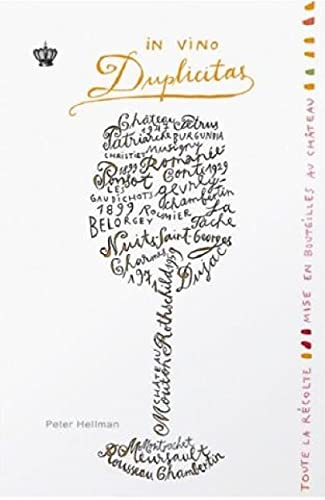 in vino
Duplicitas
Château Pétrus
1947
Patriarche BURGUNDIA
CHRISTIE'S Musigny
1899 Romanée
Ponsot Conti 1929
LES gevrey
GAUDICHOTS Chambertin
1899 ROUMIER La
BELORGEY Tâche
Nuits-Saint-Georges
Charmes 1959
1971 Dujac
CHÂTEAU
Mouton Rothschild
Montrachet
Meursault
Rousseau Chambertin
Peter Hellman
TOUTE LA RÉCOLTE MISE EN BOUTEILLES AU CHÂTEAU